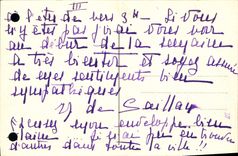 III
si vous
n'y êtes pas j'irai vous voir
au début de la semaine
à très bientôt et soyez assuré
de mes sentiments bien
sympathiques
de Saillan
Excusez mon enveloppe bien
je n'ai pu en trouver
d'autres dans toute la ville !!